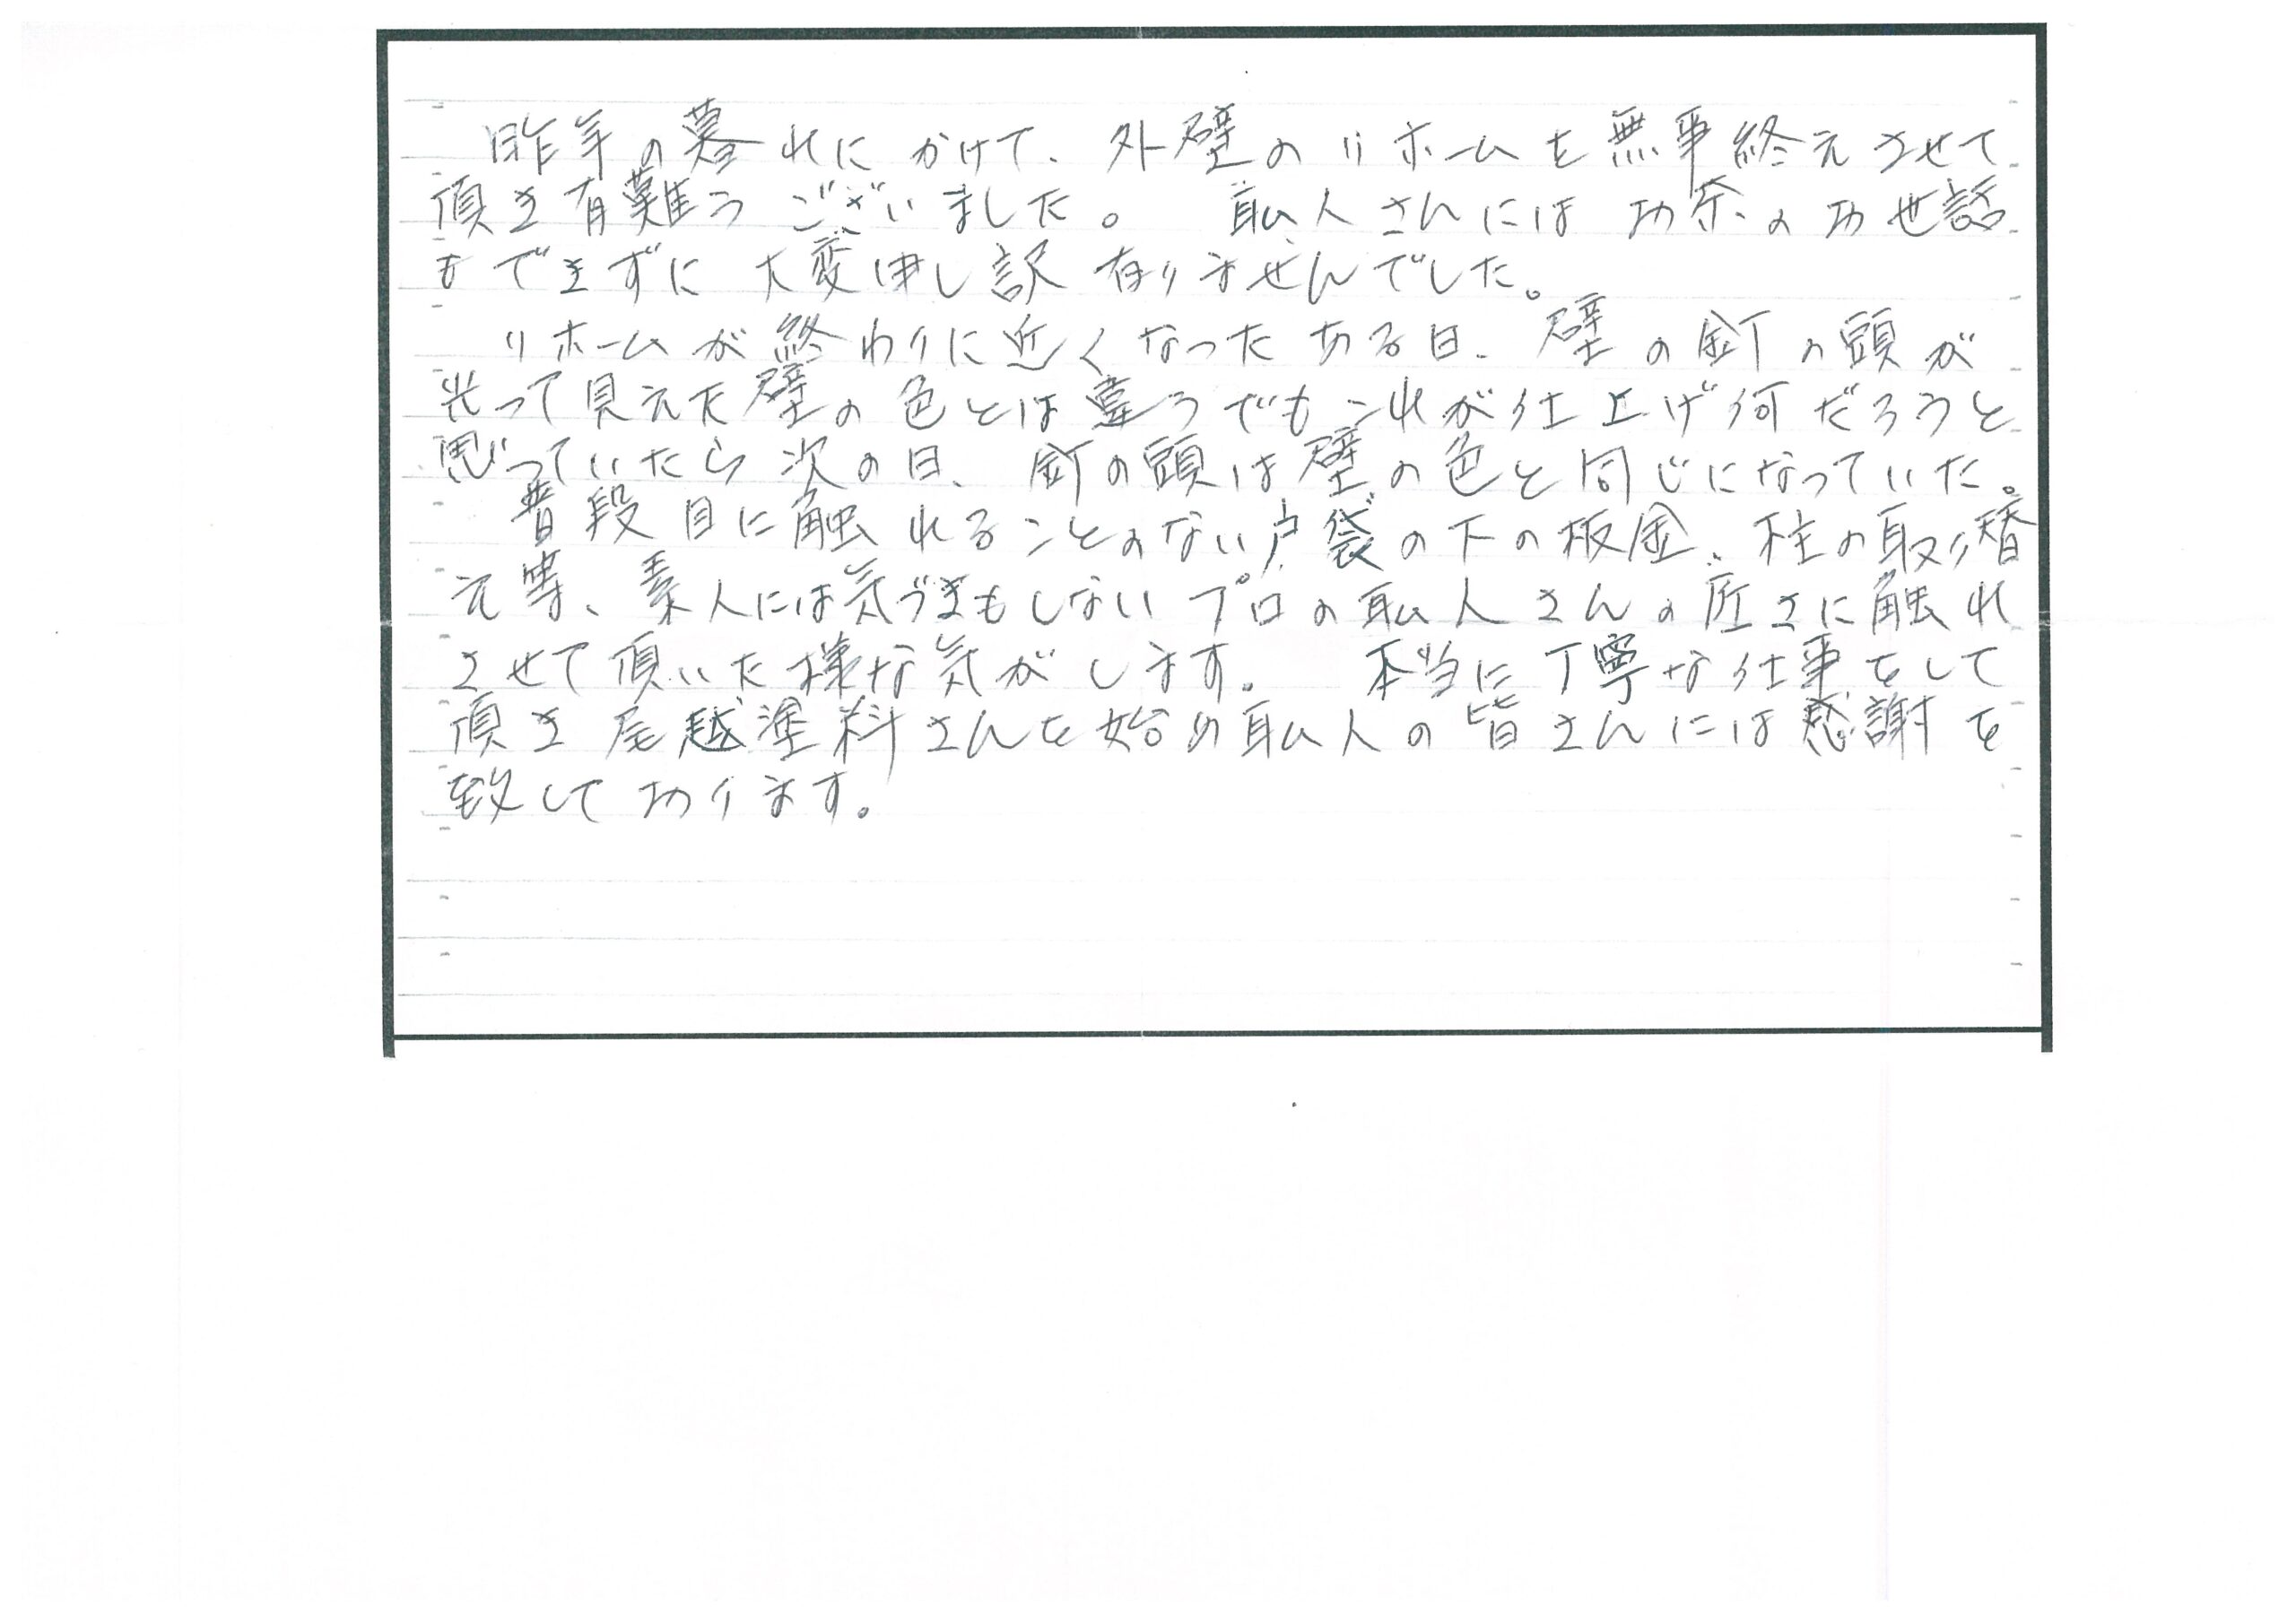 昨年の暮れにかけて、外壁のリホームを無事終えさせて
頂き有難うございました。 職人さんには お茶のお世話
もできずに 大変申し訳 有りませんでした。
リホームが終わりに近くなったある日、壁の釘の頭が
光って見えた壁の色とは違うでもこれが仕上げ何だろうと
思っていたら次の日、釘の頭は壁の色と同じになっていた。
普段目に触れることのない戸袋の下の板金、柱の取り替
え等、素人には気づきもしないプロの職人さんの匠さに触れ
させて頂いた様な気がします。 本当に丁寧な仕事をして
頂き尾越塗料さんを始め職人の皆さんには感謝を
致しております。